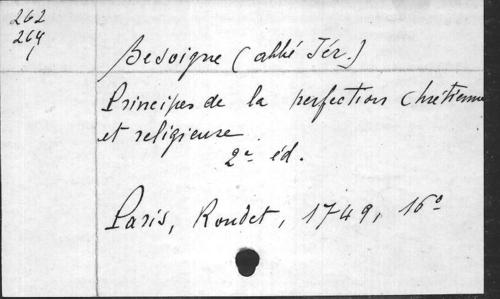 262
264
1
Besoigne (abbé Jér.)
Principes de la perfection Chrétienne
et religieuse.
2e éd.
Paris, Roudet, 1749, 16°